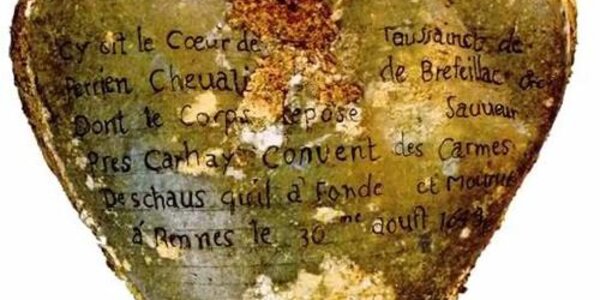 Cy Git le Coeur de Toussainct de
Perrien Cheuali de Brefeillac
Dont le Corps Repose Sauueur
Pres Carhay Convent des Carmes
Deschaus quil à Fonde et Mourut
á Rennes le 30me aoust